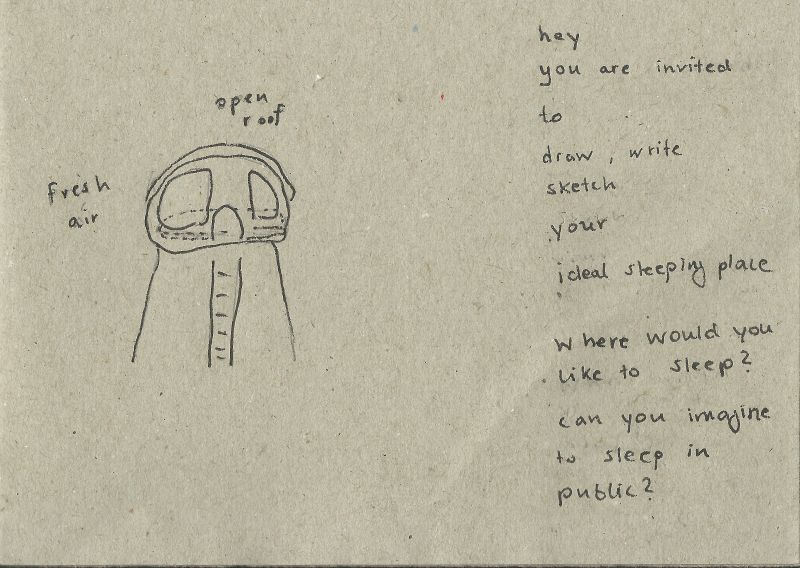 open
roof
fresh
air
hey
you are invited
to
draw, write
sketch
your
ideal sleeping place
Where would you
like to sleep?
can you imagine
to sleep in
public?